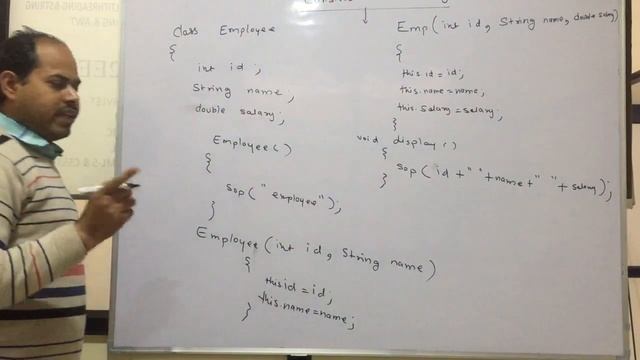 Class Employee
{
int id ;
String name ;
double salary ;
Employee ( )
{
sop ( " employee " ) ;
}
Employee ( int id , String name )
{
this id = id ;
this.name = name ;
}
Emp ( int id , String name , double salary )
{
this id = id ;
this.name = name ;
this. salary = salary ;
}
void display ( )
{
sop ( id + " " + name + " " + salary ) ;
}